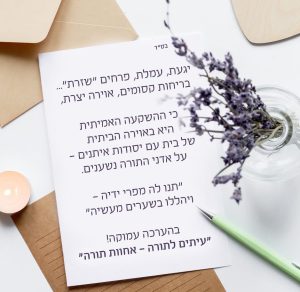 בס"ד
יגעת, עמלת, פרחים "שזרת"...
בריחות קסומים, אוירה יצרת,
כי ההשקעה האמיתית
היא באוירה הביתית
של בית עם יסודות איתנים –
על אדני התורה נשענים.
"תנו לה מפרי ידיה –
ויהללוה בשערים מעשיה"
בהערכה עמוקה!
"עיתים לתורה – אחוות תורה"